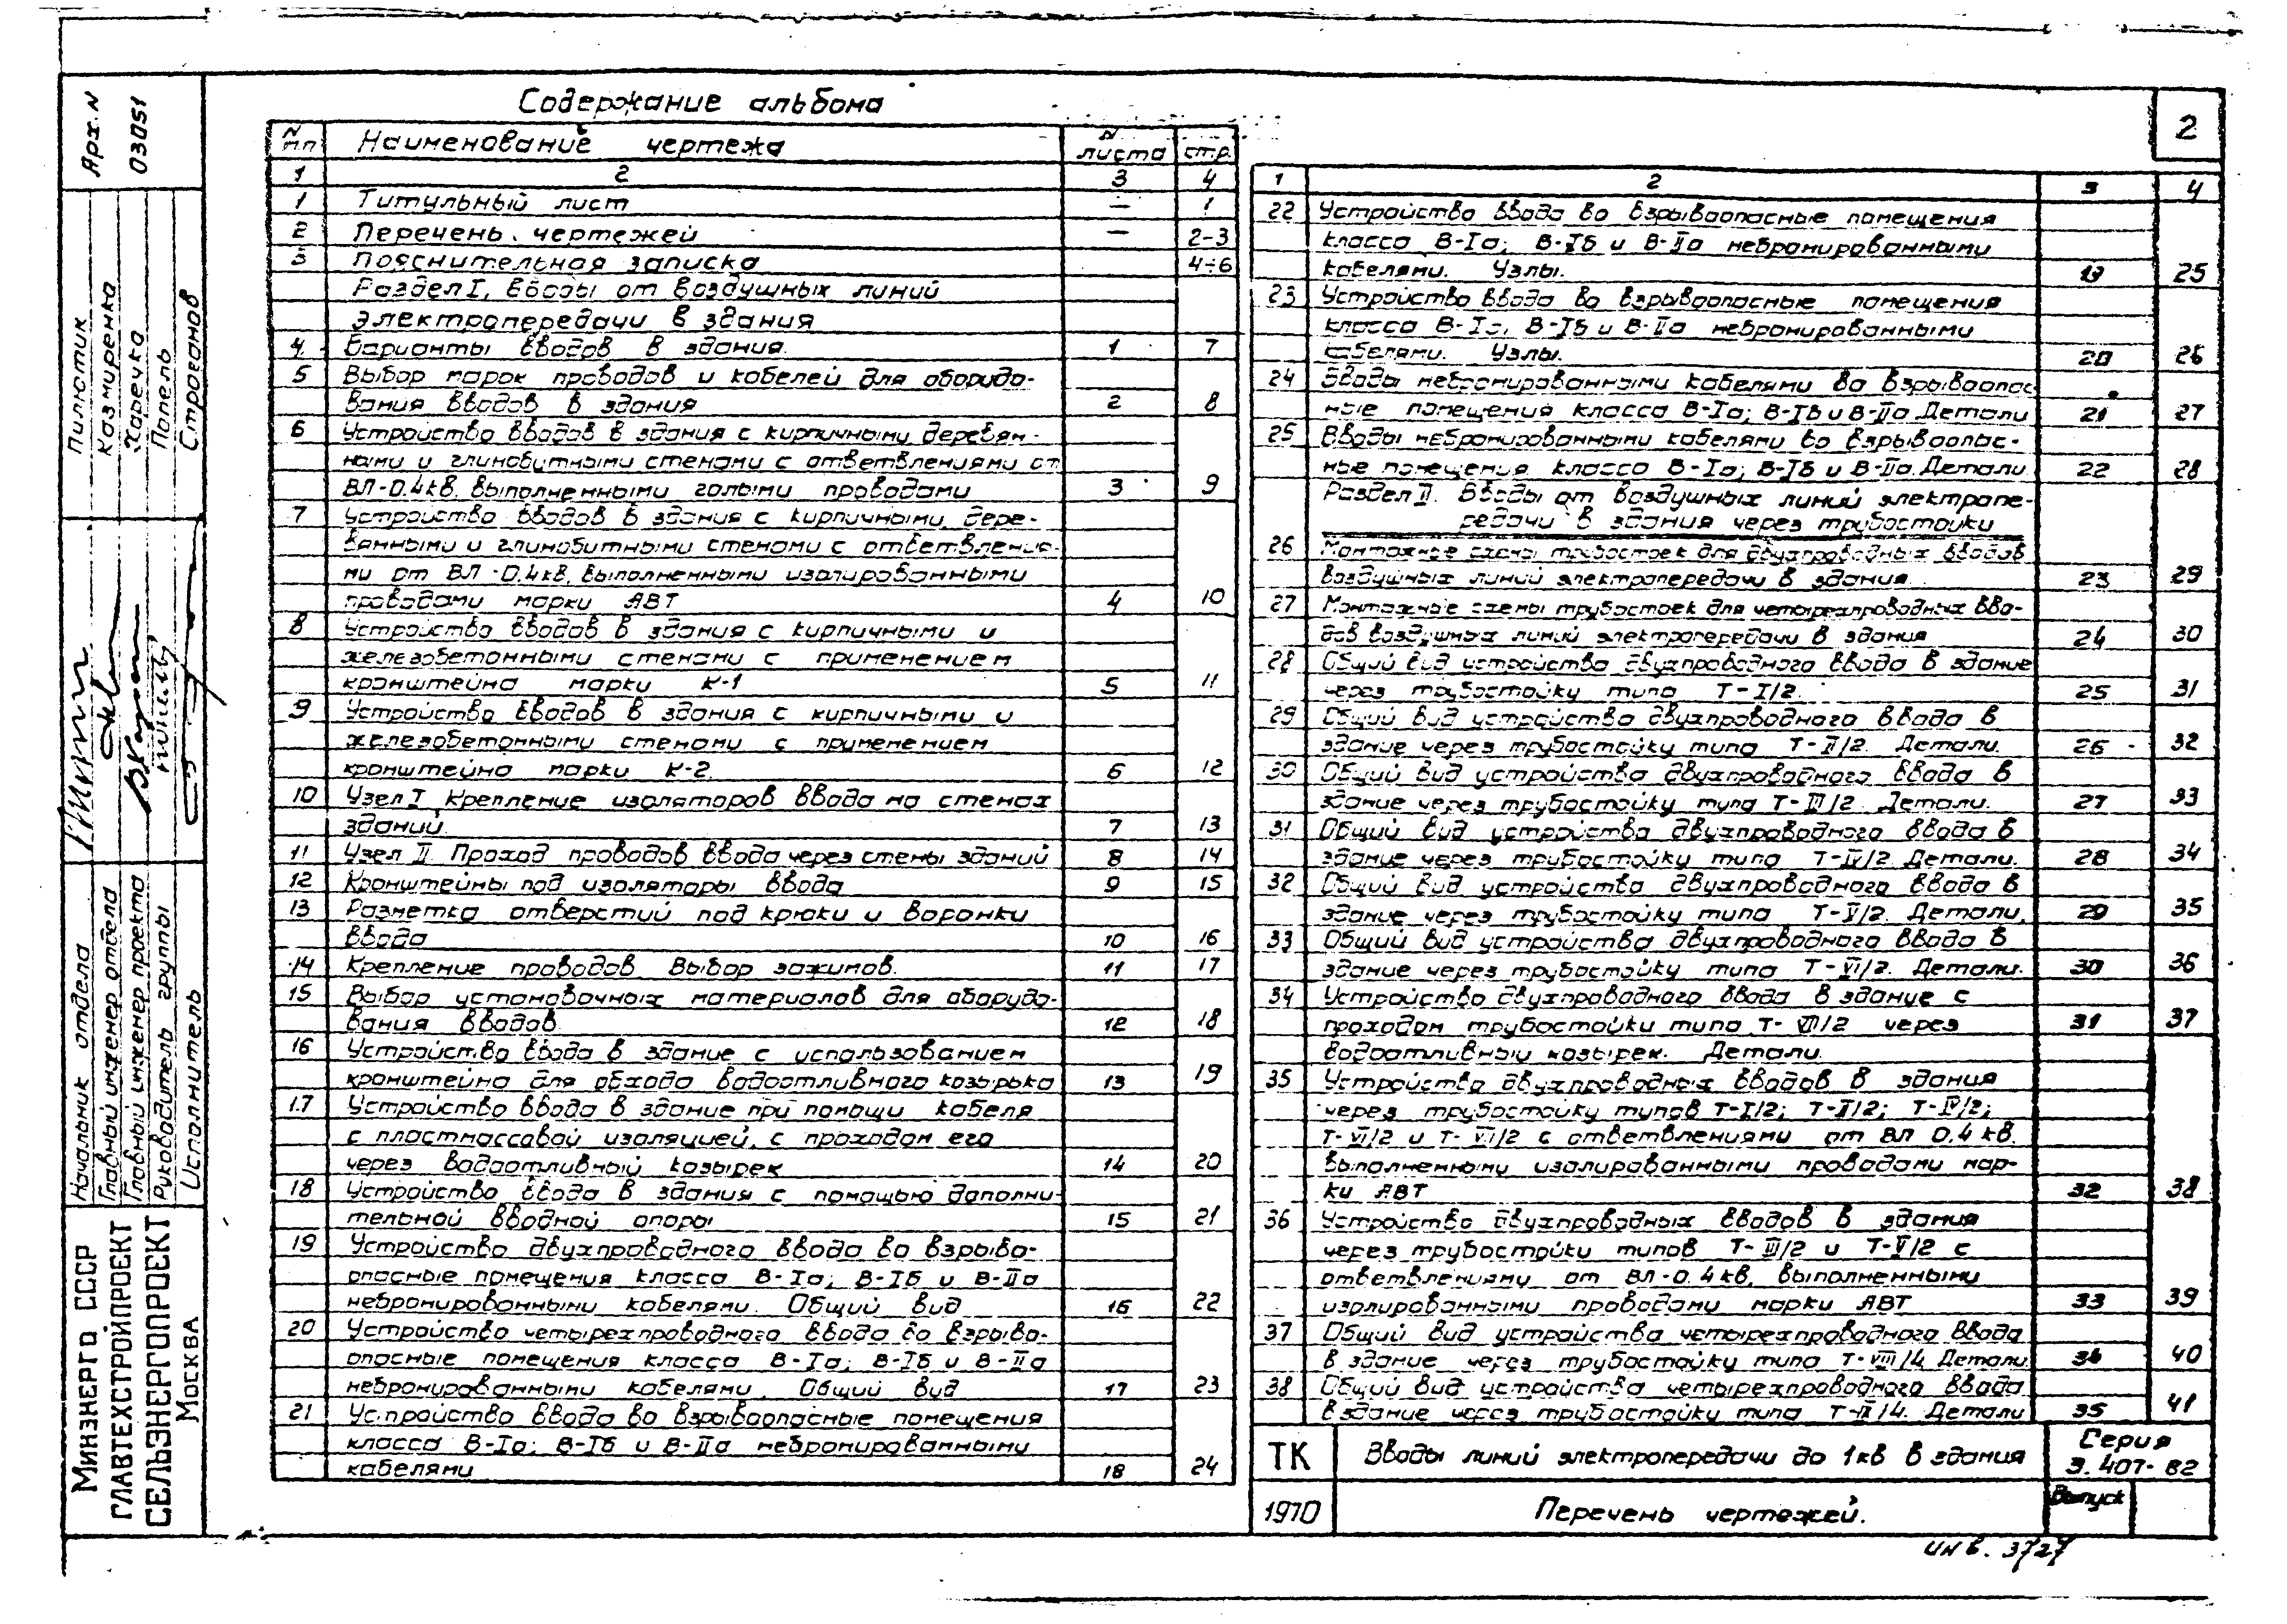 Содержание альбома
2
N пп Наименование чертежа N листа стр.
1 2 3 4
1 Титульный лист — 1
2 Перечень чертежей — 2-3
3 Пояснительная записка 4÷6
Раздел I. Вводы от воздушных линий
электропередачи в здания
4 Варианты вводов в здания. 1 7
5 Выбор марок проводов и кабелей для оборудо-
вания вводов в здания 2 8
6 Устройство вводов в здания с кирпичными, деревян-
ными и глинобитными стенами с ответвлениями от
ВЛ-0.4кв. выполненными голыми проводами 3 9
7 Устройство вводов в здания с кирпичными, дере-
вянными и глинобитными стенами с ответвления-
ми от ВЛ-0.4кв. выполненными изолированными
проводами марки АВТ 4 10
8 Устройство вводов в здания с кирпичными и
железобетонными стенами с применением
кронштейна марки К-1 5 11
9 Устройство вводов в здания с кирпичными и
железобетонными стенами с применением
кронштейна марки К-2. 6 12
10 Узел I Крепление изоляторов ввода на стенах
зданий. 7 13
11 Узел II Проход проводов ввода через стены зданий 8 14
12 Кронштейны под изоляторы ввода 9 15
13 Разметка отверстий под крюки и воронки
ввода 10 16
14 Крепление проводов Выбор зажимов. 11 17
15 Выбор установочных материалов для оборудо-
вания вводов 12 18
16 Устройство ввода в здание с использованием
кронштейна для обхода водоотливного козырька 13 19
17 Устройство ввода в здание при помощи кабеля
с пластмассовой изоляцией, с проходом его
через водоотливный козырек 14 20
18 Устройство ввода в здания с помощью дополни-
тельной вводной опоры 15 21
19 Устройство двухпроводного ввода во взрыво-
опасные помещения класса В-Iа; В-Iб и В-IIа
небронированными кабелями. Общий вид 16 22
20 Устройство четырехпроводного ввода во взрыво-
опасные помещения класса В-Iа; В-Iб и В-IIа
небронированными кабелями. Общий вид 17 23
21 Устройство ввода во взрывоопасные помещения
класса В-Iа; В-Iб и В-IIа небронированными
кабелями 18 24
1 2 3 4
22 Устройство ввода во взрывоопасные помещения
класса В-Iа; В-Iб и В-IIа небронированными
кабелями. Узлы. 19 25
23 Устройство ввода во взрывоопасные помещения
класса В-Iа, В-Iб и В-IIа небронированными
кабелями. Узлы. 20 26
24 Вводы небронированными кабелями во взрывоопас
ные помещения класса В-Iа; В-Iб и В-IIа Детали 21 27
25 Вводы небронированными кабелями во взрывоопас-
ные помещения класса В-Iа; В-Iб и В-IIа. Детали 22 28
Раздел II. Вводы от воздушных линий электропе-
редачи в здания через трубостойки
26 Монтажные схемы трубостоек для двухпроводных вводов
воздушных линий электропередачи в здания. 23 29
27 Монтажные схемы трубостоек для четырехпроводных вво-
дов воздушных линий электропередачи в здания 24 30
28 Общий вид устройства двухпроводного ввода в здание
через трубостойку типа Т-I/2. 25 31
29 Общий вид устройства двухпроводного ввода в
здание через трубостойку типа Т-II/2. Детали. 26 32
30 Общий вид устройства двухпроводного ввода в
здание через трубостойку типа Т-III/2. Детали. 27 33
31 Общий вид устройства двухпроводного ввода в
здание через трубостойку типа Т-IV/2 Детали. 28 34
32 Общий вид устройства двухпроводного ввода в
здание через трубостойку типа Т-V/2. Детали, 29 35
33 Общий вид устройства двухпроводного ввода в
здание через трубостойку типа Т-VI/2. Детали. 30 36
34 Устройство двухпроводного ввода в здание с
проходом трубостойки типа Т-VII/2 через 31 37
водоотливный козырек. Детали.
35 Устройство двухпроводных вводов в здания
через трубостойку типов Т-I/2; Т-II/2; Т-IV/2;
Т-VI/2 и Т-VII/2 с ответвлениями от ВЛ 0.4 кв.
выполненными изолированными проводами мар-
ки АВТ 32 38
36 Устройство двухпроводных вводов в здания
через трубостойки типов Т-III/2 и Т-V/2 с
ответвлениями от ВЛ-0.4кв, выполненными
изолированными проводами марки АВТ 33 39
37 Общий вид устройства четырехпроводного ввода
в здание через трубостойку типа Т-VIII/4 Детали 34 40
38 Общий вид устройства четырехпроводного ввода
в здание через трубостойку типа Т-IX/4. Детали 35 41
ТК Вводы линий электропередачи до 1кв в здания Серия
3.407-82
1970 Перечень чертежей. Выпуск
инв. 3727
Арх. N
03051
Пилютик
Казмиренко
Харечко
Попель
Строганов
Начальник отдела
Главный инженер отдела
Главный инженер проекта
Руководитель группы
Исполнитель
Минэнерго СССР
ГЛАВТЕХСТРОЙПРОЕКТ
СЕЛЬЭНЕРГОПРОЕКТ
Москва